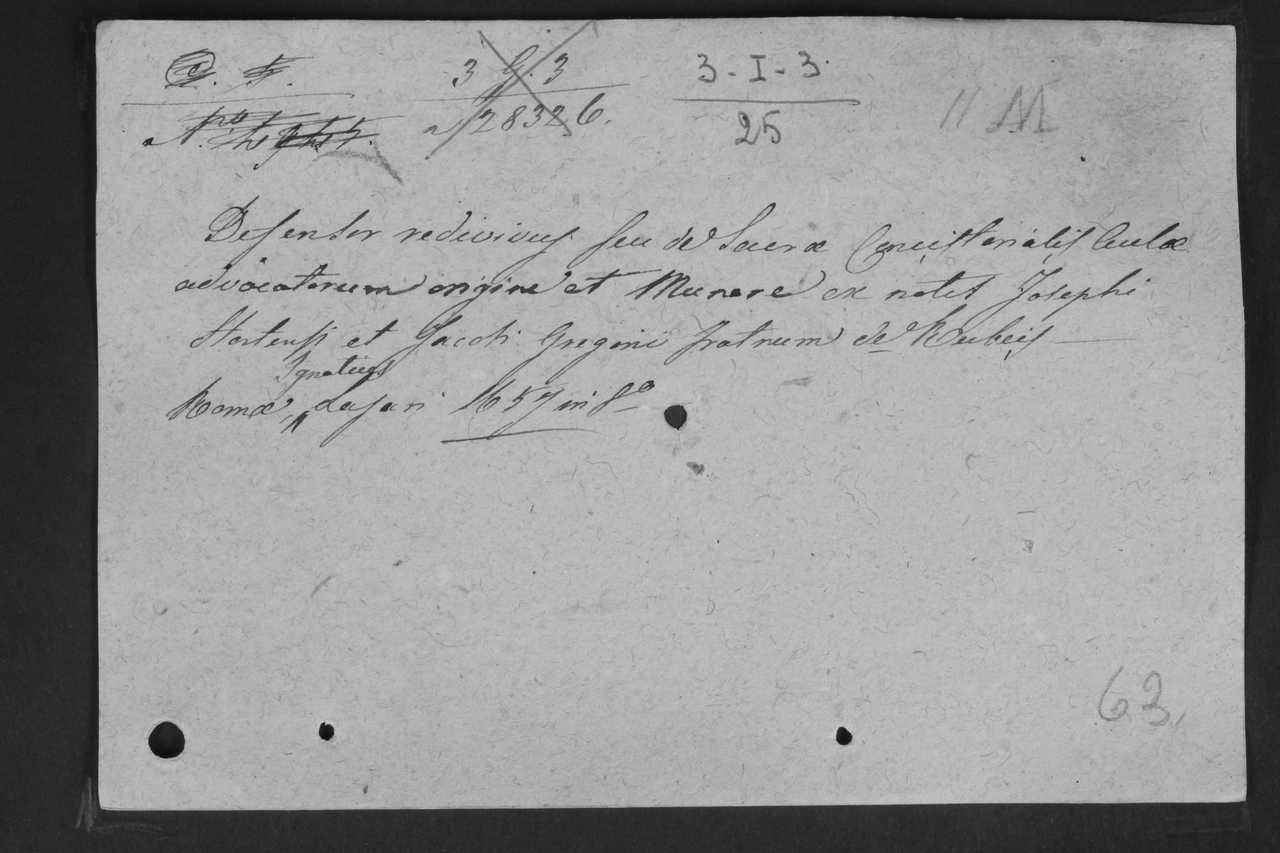 3 G. 3
28326.
3 - I - 3.
25
11 M
Defensor redivivus seu de Sacræ Consistorialis Aulæ
advocatorum origine et Munere ex notis Josephi
et Jacobi Gregorii fratrum de Rubeis
Ignatius
Romæ, 1657 in 8º
63.